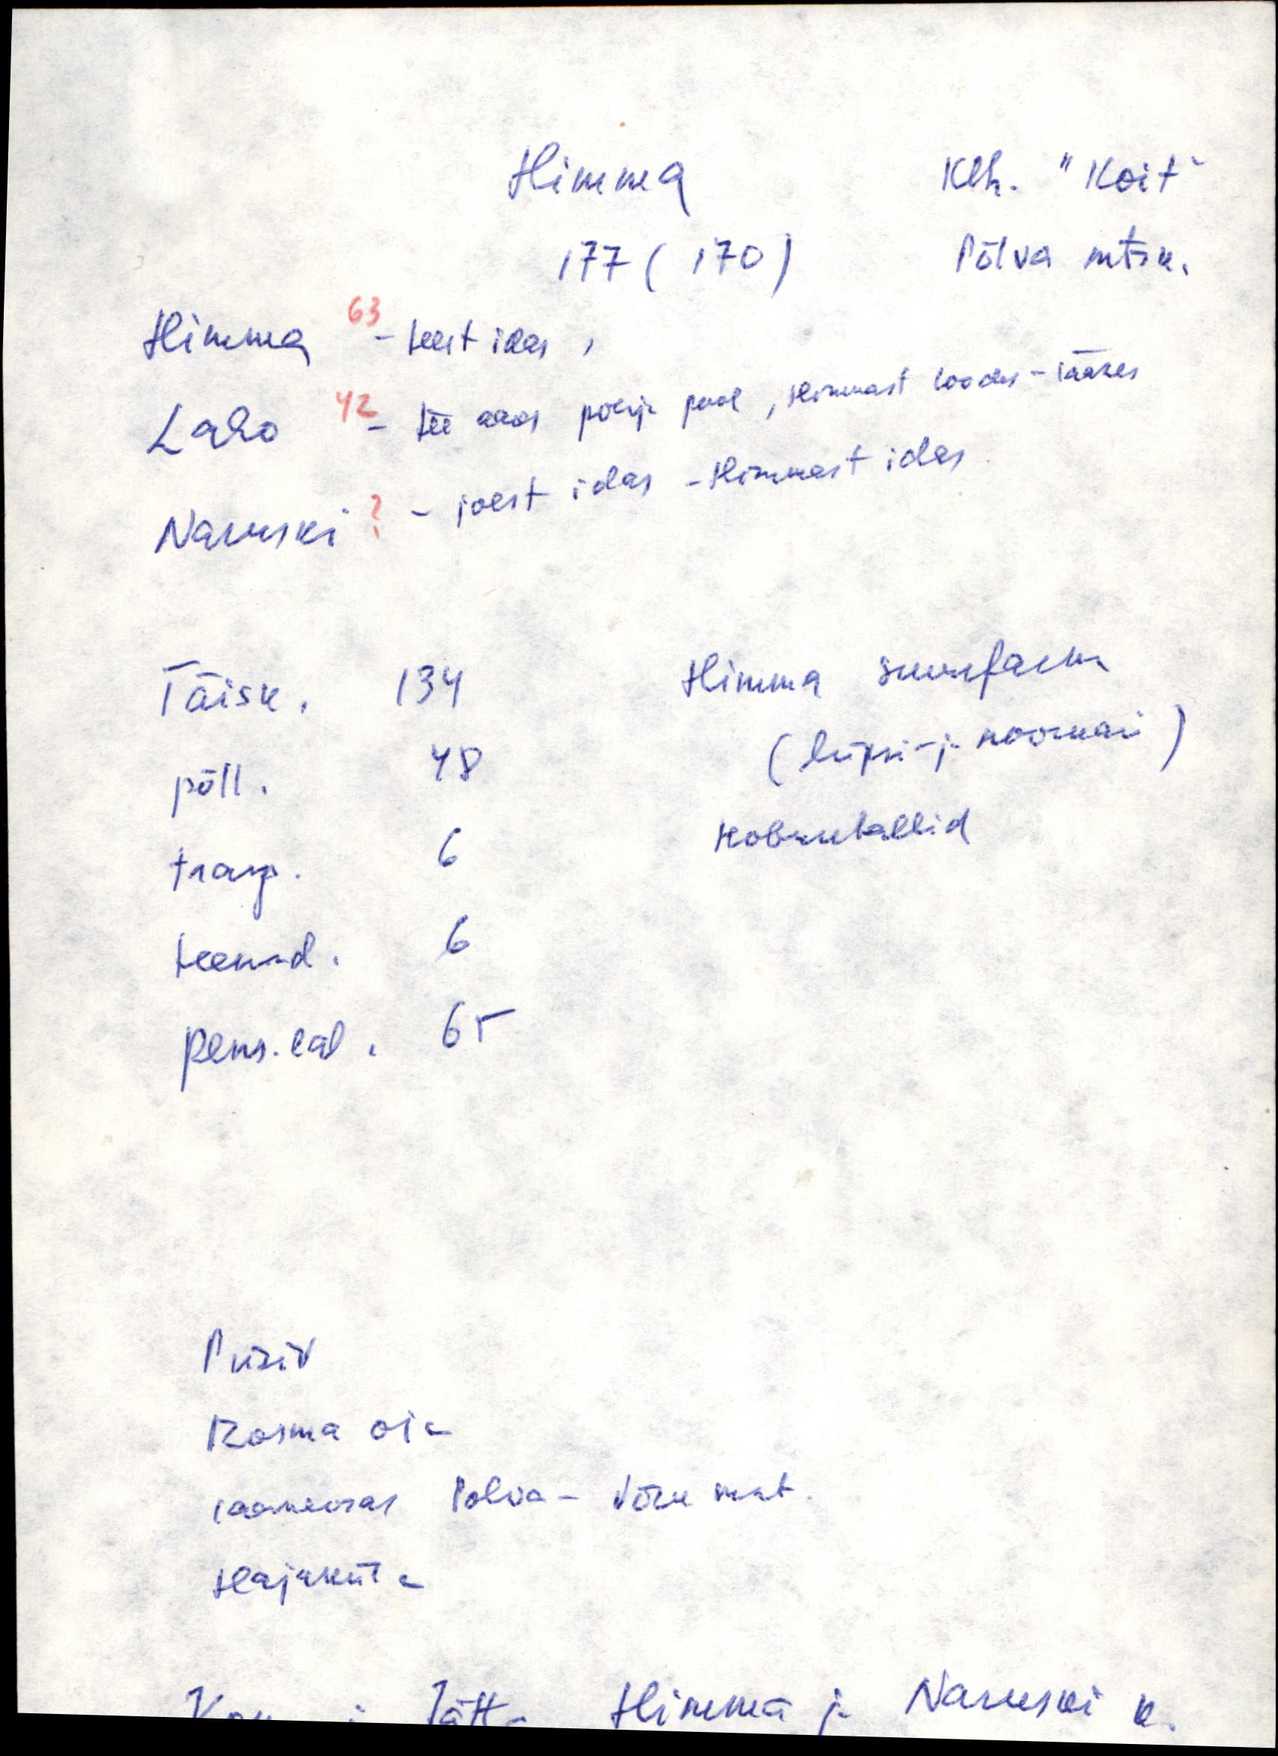 Himma Klh. "Koit"
177 (170) Põlva mtsk.
Himma 63 - teest idas,
Laho 42 - tee ääres põhja pool, Himmast loodes - läänes
Naruski ? - jõest idas - Himmast idas
Täisk. 134 Himma suurfarm
põll. 48 (lüpsi- j. noorkari)
transp. 6 Hobusetallid
teenind. 6
pens. eal. 65
Püsiv
Rosma oja
Põlva - Võru mnt.
Hajaküla
Jätta Himma j. Naruski k.